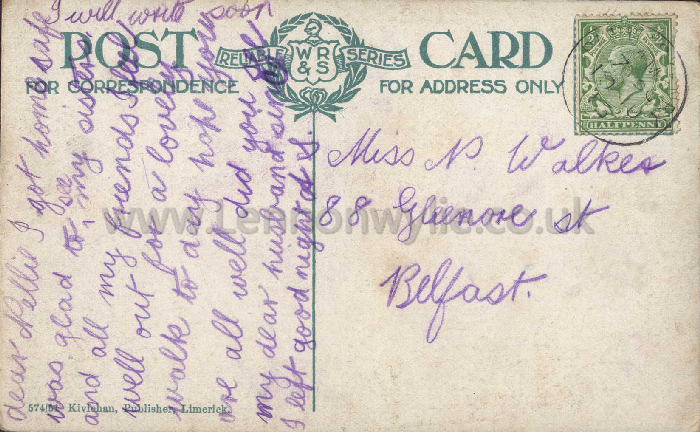 POST CARD
RELIABLE WR & S SERIES
FOR CORRESPONDENCE
FOR ADDRESS ONLY
HALFPENNY
I will write soon
dear Nellie I got home safe
was glad to see my sisters
and all my friends I
well out for a lovely
walk to day hope you
are all well did you
my dear husband since
I left good night
Miss N. Walker
88 Glenore st
Belfast.
www.Lennonwylie.co.uk
Kivlehan, Publisher, Limerick.